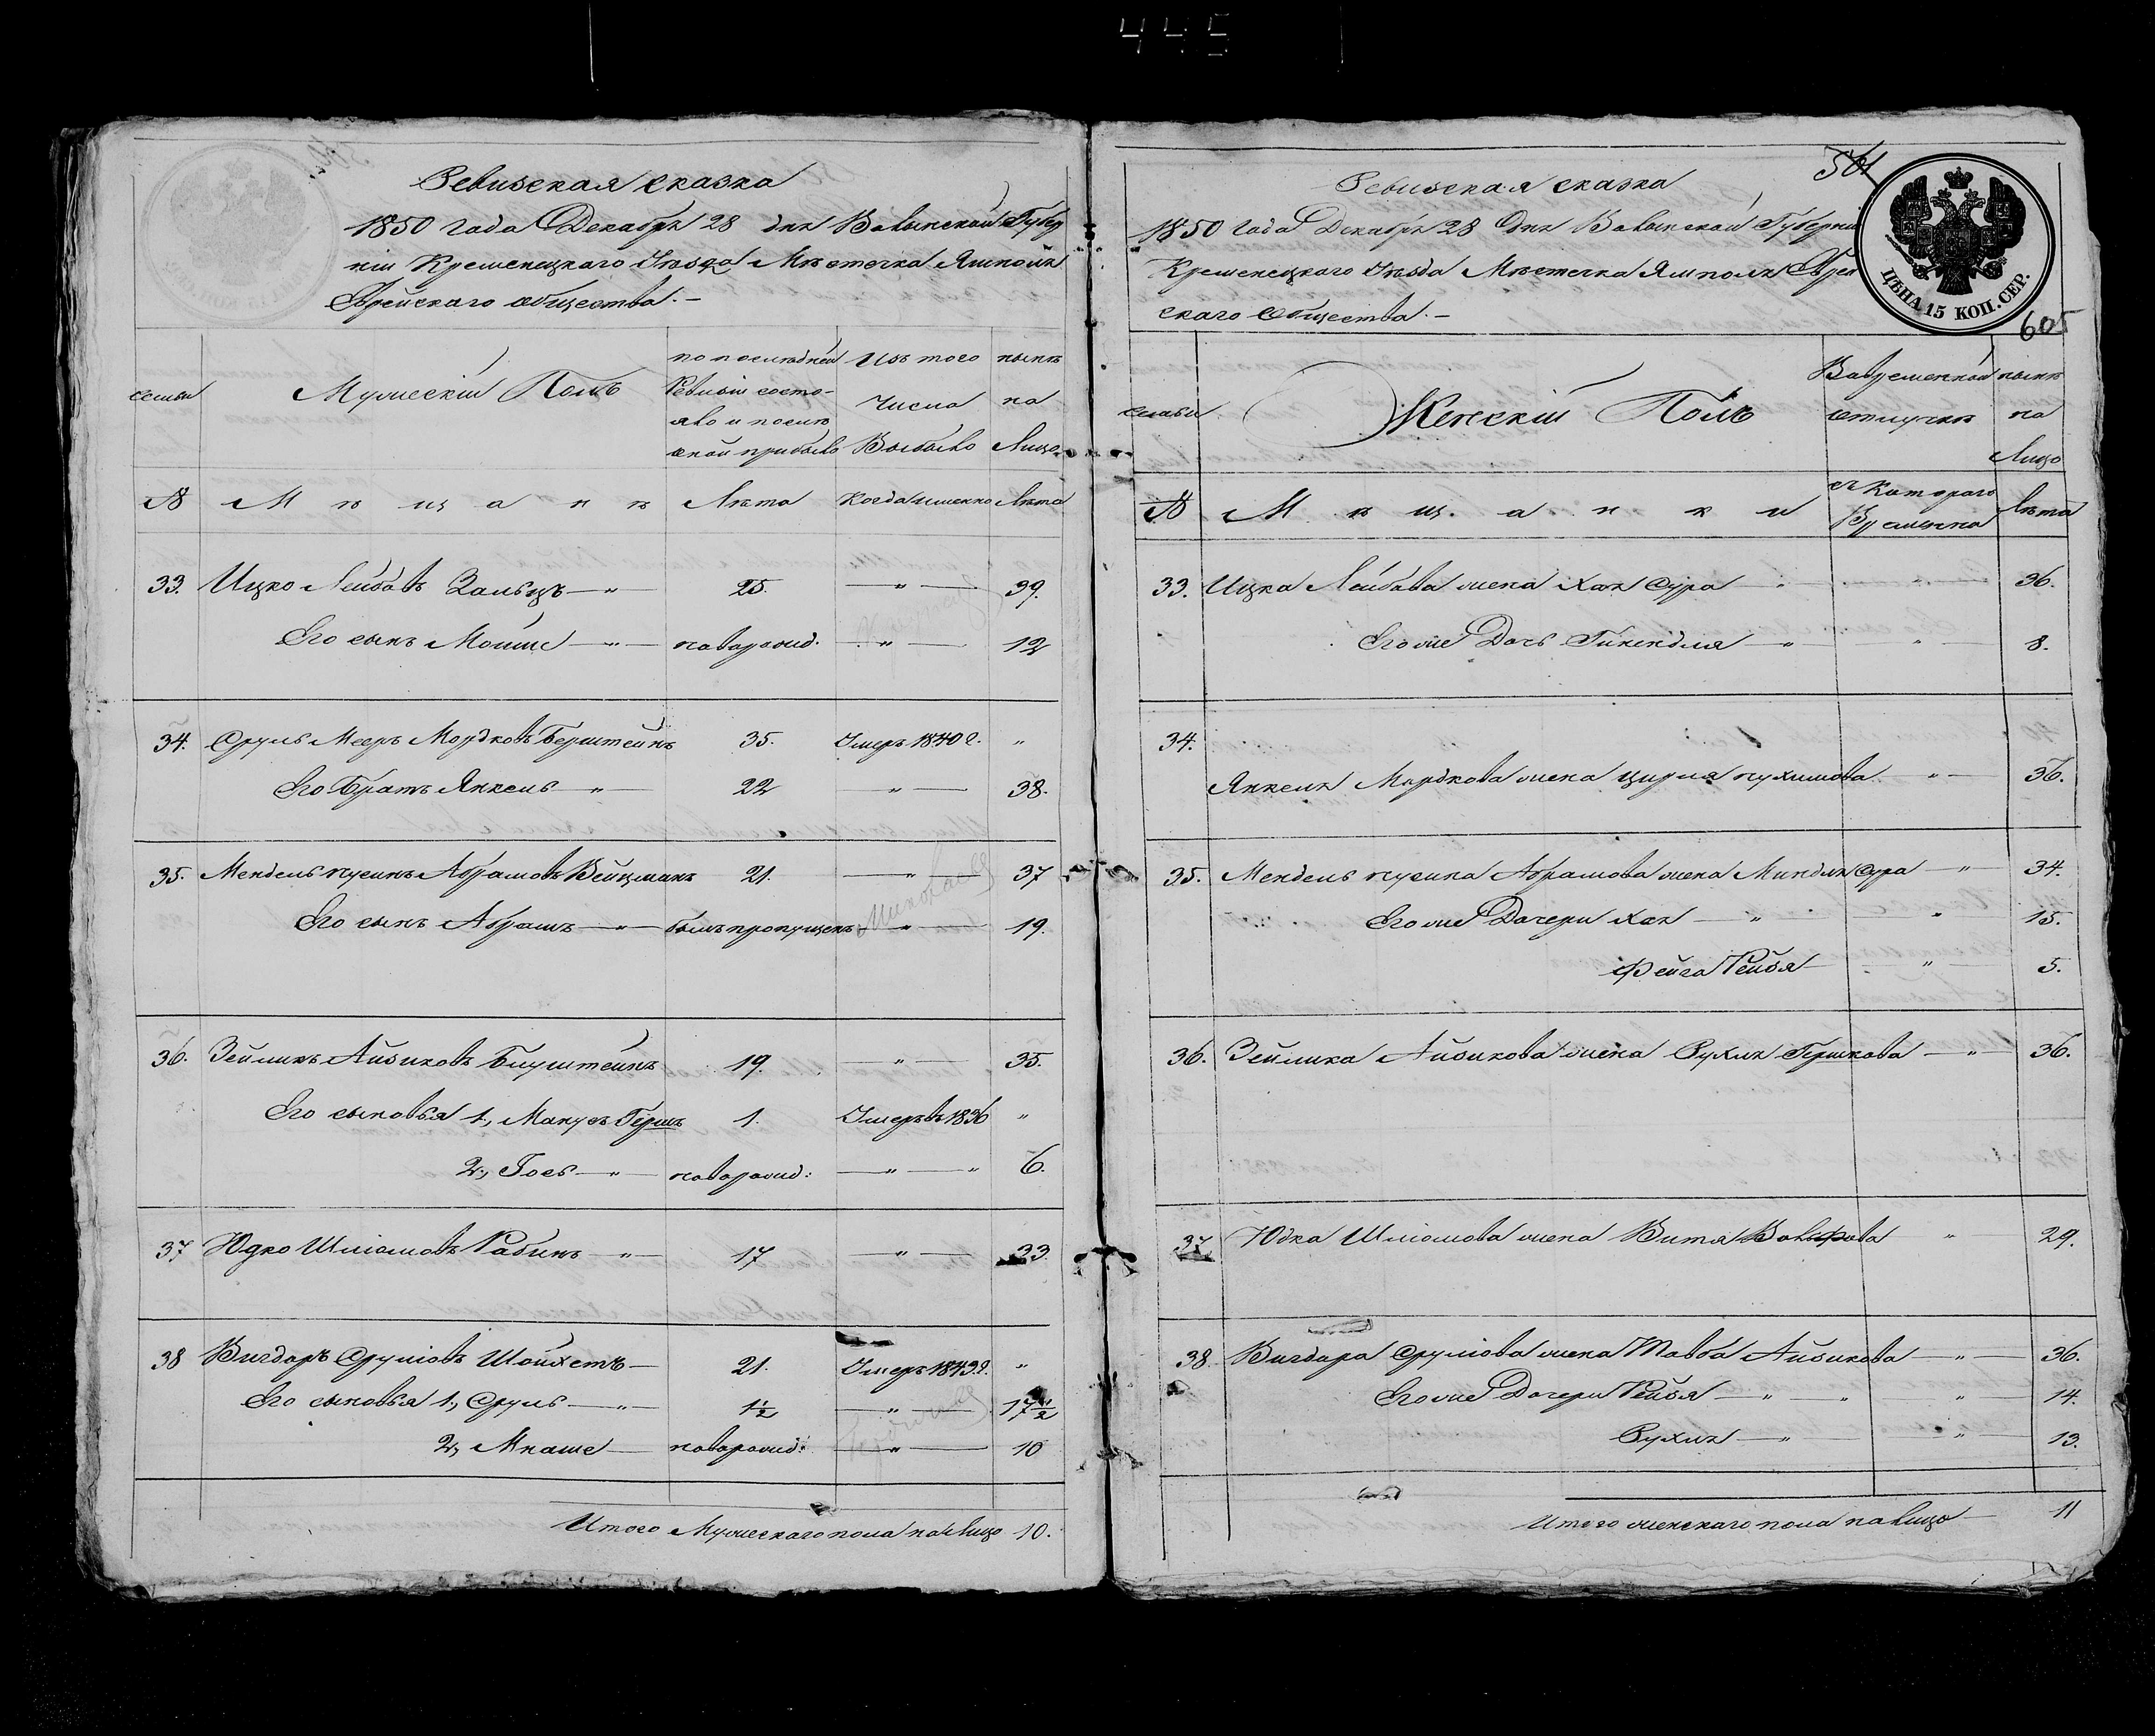 445
Ревизская сказка
1850 года Декабря 28 дня Волынской Губер
ніи Кременецкаго Уѣзда Мѣстечка Ямполя
Еврейскаго общества.—
семьи
Мужескій Полъ
по послѣдней
Ревизіи состо-
яло и послѣ
оной прибыло
Изъ того
числа
Выбыло
нынѣ
на
Лицо
№ Мѣщанѣ Лѣта Когда именно Лѣта
33. Ицко Лейбовъ Зальцъ —"— 25. —"— 39.
Его сынъ Мошко —"— новорожд. —"— 12
34. Сруль Мееръ Мордковъ Берштейнъ 35. Умеръ 1840 г. "
Его братъ Янкель —"— 22 —"— 38.
35. Мендель нусинъ Абрамовъ Вейцманъ 21. —"— 37
Его сынъ Абрамъ —"— былъ пропущенъ —"— 19.
36. Зейликъ Айзиковъ Бирштейнъ 19. —"— 35.
Его сыновья 1., Манусъ Гершъ 1. Умеръ въ 1836 "
2., Гось —"— новорожд: —"— " 6.
37 Юдко Шліомовъ Рабинъ —"— 17 —"— 33.
38 Вигдоръ Сруліовъ Шойхетъ — 21. Умеръ 1843 г. "
Его сыновья 1., Сруль —"— 1½ —"— 17½
2, Мнаше — новорожд: —"— 10
Итого Мужескаго пола на лицо 10.
501
Ревизская сказка
1850 года Декабря 28 Дня Волынской Губерніи
Кременецкаго Уѣзда Мѣстечка Ямполя Еврей
скаго Общества.—
ЦѢНА 15 КОП. СЕР.
605
семьи
Женскій Полъ
Во временной
отлучкѣ
нынѣ
на
Лицо
№ Мѣщанки
съ Котораго
Времени
Лѣта
33. Ицка Лейбова жена Хая Сура " —"— 36.
Его же Дочь Гинендля —"— " 8.
34.
Янкеля Мордкова жена Цирля нухимова —"— 36.
35. Мендель нусина Абрамова жена Миндля Сура —"— 34.
Его же Дочери Хая —"— " 15.
Фейга Рейзя — —"— 5.
36. Зейлика Айзикова жена Рухля Гершкова —"— 36.
37 Юдка Шліомова жена Витя Волфова " 29.
38. Вигдора Сруліова жена Товба Айзикова —"— 36.
Его же Дочери Рейзя —"— " 14.
Рухля —"— " 13.
Итого женскаго пола на лицо — 11